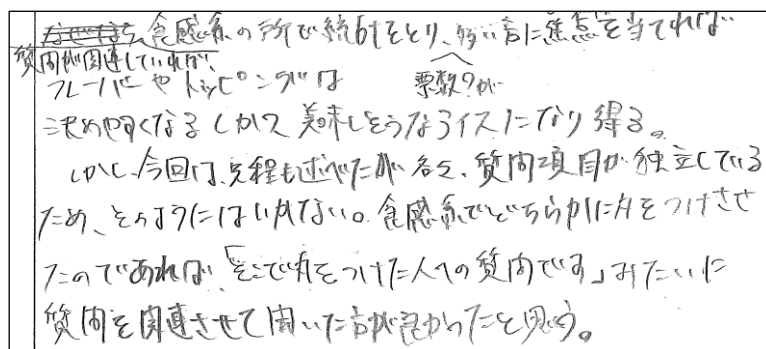 なぜなら、食感系の所で統計をとり、多い方に焦点を当てれば
質問が関連していれば、
フレーバーやトッピングは 票数?が
決めやすくなるしかつ美味しそうなアイスになり得る。
しかし、今回は、先程も述べたが各々、質問項目が独立している
ため、そのようにはいかない。食感系でどちらかに丸をつけさせ
たのであれば「そこで丸をつけた人への質問です」みたいに
質問を関連させて聞いた方が良かったと思う。